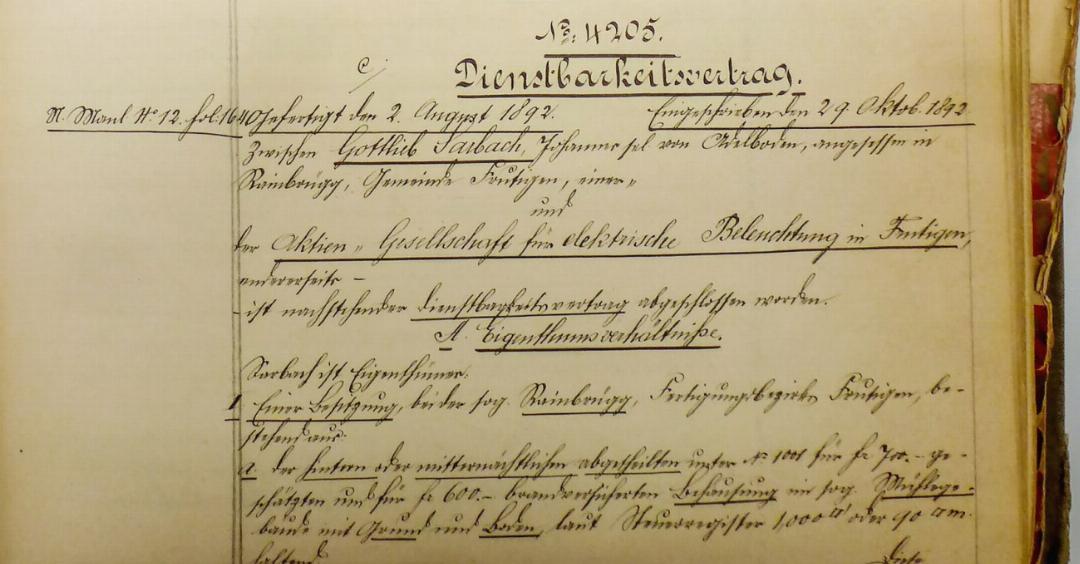 No: 4205.
Dienstbarkeitsvertrag.
N. Manl No 12. fol. 164
Gefertigt den 2. August 1892. Eingeschrieben den 29 Oktob. 1892
Zwischen Gottlieb Sarbach, Johannes sel von Adelboden, angesessen in
Rainbrügg, Gemeinde Frutigen, einer„
und
der Aktien„ Gesellschaft für elektrische Beleuchtung in Frutigen,
andererseits –
ist nachstehender Dienstbarkeitsvertrag abgeschlossen worden.
A. Eigenthumsverhältniße.
Sarbach ist Eigenthümer:
1 Einer Besitzung, bei der sog. Rainbrügg, Fertigungsbezirks Frutigen, be-
stehend aus:
a. der hintern oder mitternächtlichen abgetheilten unter No 1001 für fr 700.– ge-
schätzten und für fr 600.– brandversicherten Behausung im sog.
baude mit Grund und Boden, laut Steuerregister 1,000 oder 90
haltend.
Diese